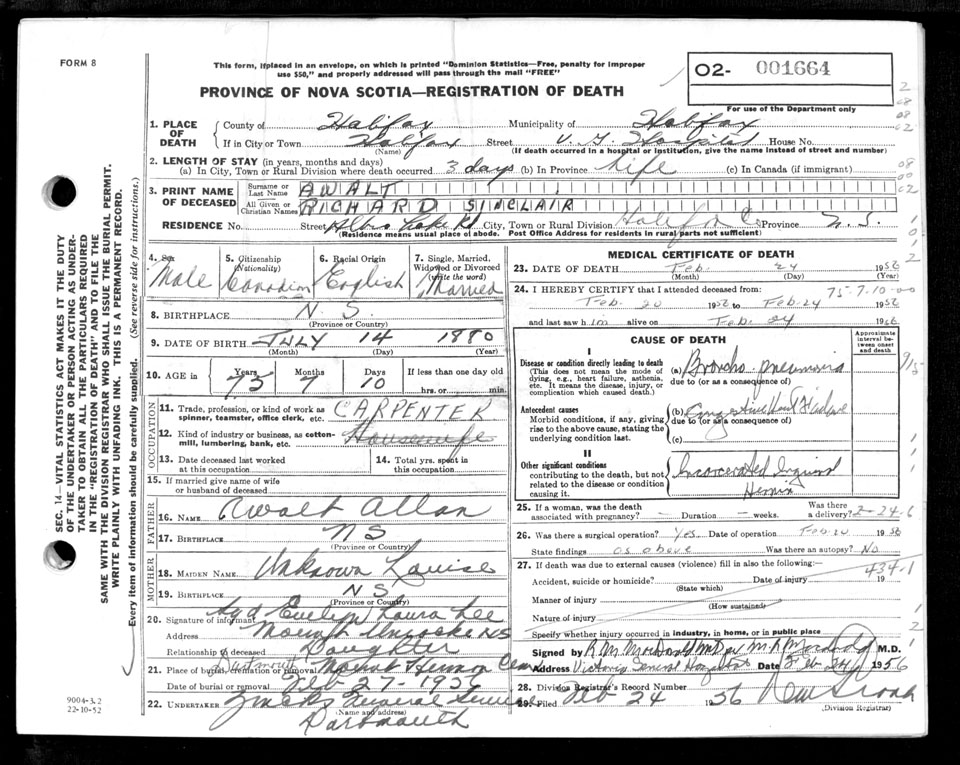 FORM 8
This form, if placed in an envelope, on which is printed "Dominion Statistics—Free, penalty for improper
use $50," and properly addressed will pass through the mail "FREE"
O2- 001664
PROVINCE OF NOVA SCOTIA—REGISTRATION OF DEATH
For use of the Department only
1. PLACE OF DEATH County of Halifax Municipality of Halifax
If in City or Town Halifax Street V. G. Hospital House No.
(Name) (If death occurred in a hospital or institution, give the name instead of street and number)
2. LENGTH OF STAY (in years, months and days)
(a) In City, Town or Rural Division where death occurred 3 days (b) In Province Life (c) In Canada (if immigrant)
3. PRINT NAME OF DECEASED Surname or Last Name AWALT
All Given or Christian Names RICHARD SINCLAIR
RESIDENCE No. Street Albro Lake Rd City, Town or Rural Division Halifax Co Province N.S.
(Residence means usual place of abode. Post Office Address for residents in rural parts not sufficient)
4. Sex Male
5. Citizenship (Nationality) Canadian
6. Racial Origin English
7. Single, Married, Widowed or Divorced (write the word) Married
8. BIRTHPLACE N. S.
(Province or Country)
9. DATE OF BIRTH JULY 14 1880
(Month) (Day) (Year)
10. AGE in Years 75 Months 7 Days 10 If less than one day old hrs. or min.
OCCUPATION
11. Trade, profession, or kind of work as spinner, teamster, office clerk, etc. CARPENTER
12. Kind of industry or business, as cotton-mill, lumbering, bank, etc. Housewife
13. Date deceased last worked at this occupation
14. Total yrs. spent in this occupation
15. If married give name of wife or husband of deceased
FATHER
16. NAME Awalt Allan
17. BIRTHPLACE N S
(Province or Country)
MOTHER
18. MAIDEN NAME Unknown Louise
19. BIRTHPLACE N S
(Province or Country)
20. Signature of informant Sgd Evelyn Laura Lee
Address North NS
Relationship to deceased Daughter
21. Place of burial, cremation or removal Dartmouth Mount Hermon Cem
Date of burial or removal Feb 27 - 1956
22. UNDERTAKER Zinck's Funeral Service
(Name and address)
Dartmouth
MEDICAL CERTIFICATE OF DEATH
23. DATE OF DEATH Feb. 24 1956
(Month) (Day) (Year)
24. I HEREBY CERTIFY that I attended deceased from: 75-7-10-00
Feb. 20 1956 to Feb. 24 1956
and last saw him alive on Feb. 24 1956
CAUSE OF DEATH
Approximate interval between onset and death
I
Disease or condition directly leading to death
(This does not mean the mode of dying, e.g., heart failure, asthenia, etc. It means the disease, injury, or complication which caused death.)
(a) Broncho-pneumonia
due to (or as a consequence of)
Antecedent causes
Morbid conditions, if any, giving rise to the above cause, stating the underlying condition last.
(b) Congestive Heart Failure
due to (or as a consequence of)
(c)
II
Other significant conditions
contributing to the death, but not related to the disease or condition causing it.
Incarcerated Inguinal Hernia
25. If a woman, was the death associated with pregnancy? Duration weeks. Was there a delivery? 2-24-6
26. Was there a surgical operation? Yes Date of operation Feb 20 1956
State findings as above Was there an autopsy? No
27. If death was due to external causes (violence) fill in also the following: 434.1
Accident, suicide or homicide? Date of injury 19
(State which)
Manner of injury
(How sustained)
Nature of injury
Specify whether injury occurred in industry, in home, or in public place
Signed by R. M. MacDonald M.D. per M.R. Macdonald M.D.
Address Victoria General Hospital Date Feb 24 1956
28. Division Registrar's Record Number
29. Filed Feb 24 1956
(Division Registrar)
SEC. 14—VITAL STATISTICS ACT MAKES IT THE DUTY
OF THE UNDERTAKER OR PERSON ACTING AS UNDER-
TAKER TO OBTAIN ALL THE PARTICULARS REQUIRED
IN THE "REGISTRATION OF DEATH" AND TO FILE THE
SAME WITH THE DIVISION REGISTRAR WHO SHALL ISSUE THE BURIAL PERMIT.
WRITE PLAINLY WITH UNFADING INK. THIS IS A PERMANENT RECORD.
Every item of information should be carefully supplied. (See reverse side for instructions.)
9004-3.2
22-10-52